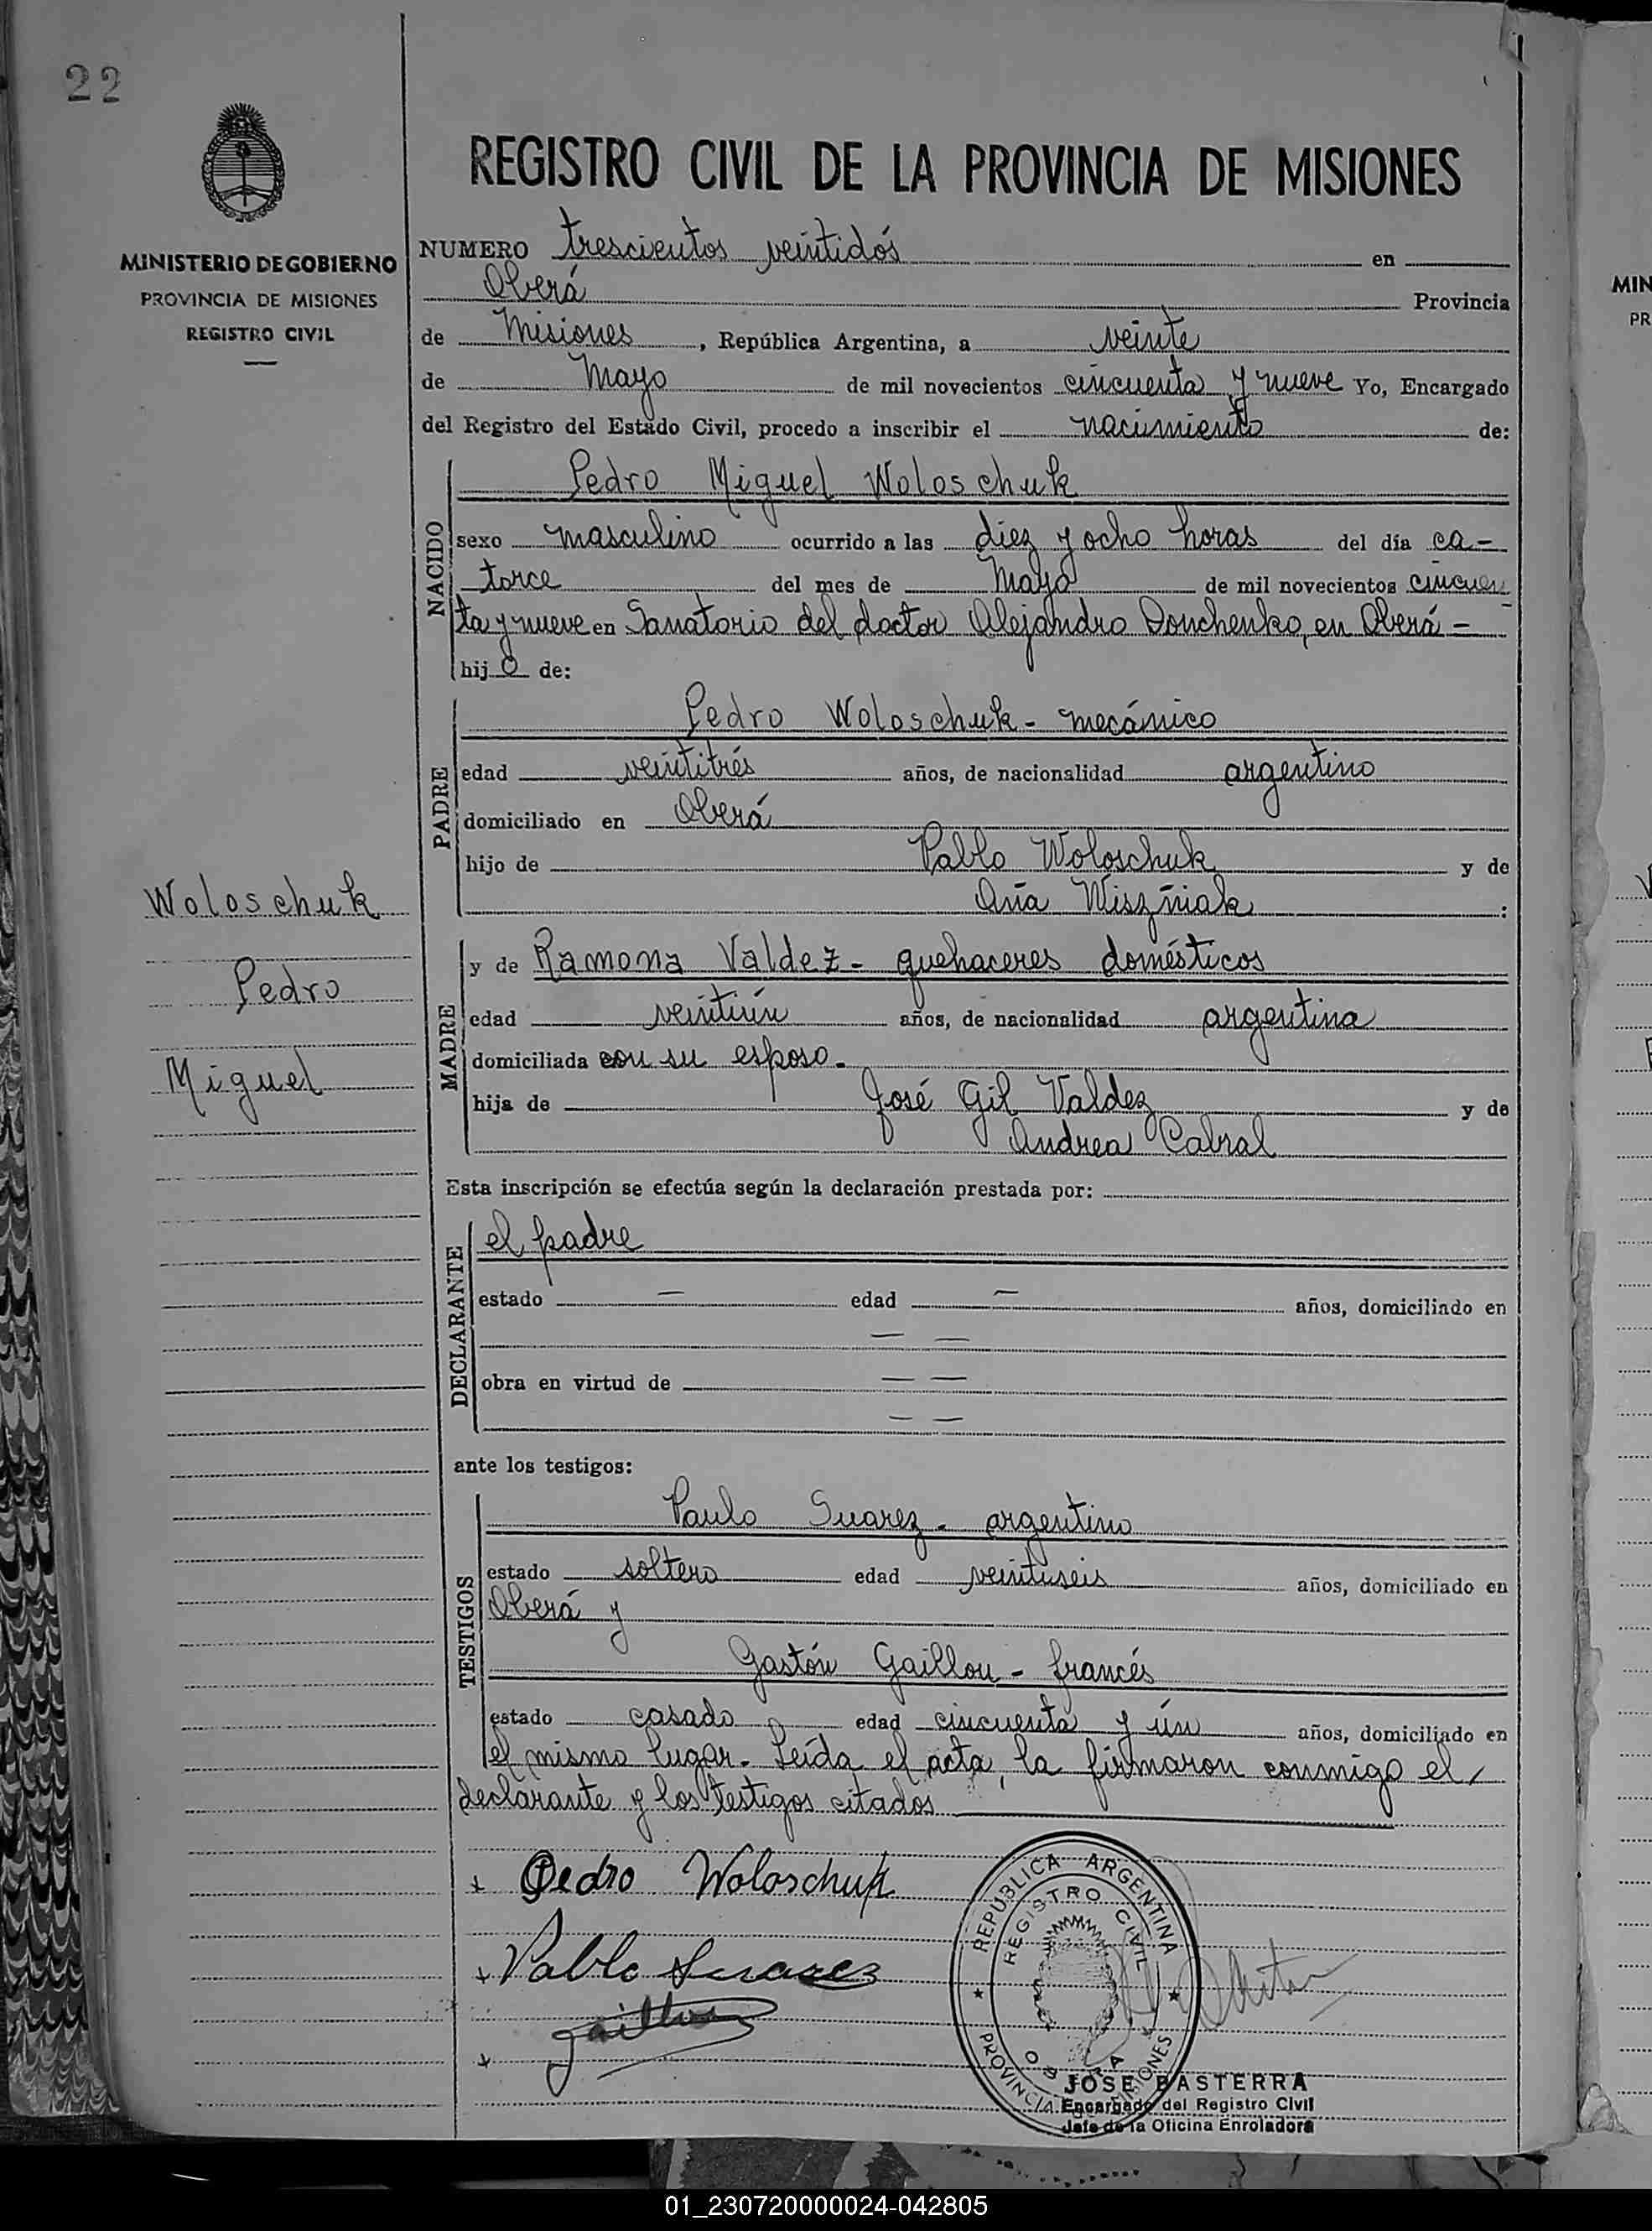 22
REGISTRO CIVIL DE LA PROVINCIA DE MISIONES
MINISTERIO DE GOBIERNO
PROVINCIA DE MISIONES
REGISTRO CIVIL
NUMERO trescientos veintidós en
Oberá Provincia
de Misiones, República Argentina, a veinte
de Mayo de mil novecientos cincuenta y nueve Yo, Encargado
del Registro del Estado Civil, procedo a inscribir el nacimiento de:
NACIDO
Pedro Miguel Woloschuk
sexo masculino ocurrido a las diez y ocho horas del día ca-
torce del mes de Mayo de mil novecientos cincuen
ta y nueve en Sanatorio del doctor Alejandro Donchenko, en Oberá -
hijo de:
PADRE
Pedro Woloschuk - mecánico
edad veintitrés años, de nacionalidad argentino
domiciliado en Oberá
hijo de Pablo Woloschuk y de
Ana Wiszniak :
Woloschuk
Pedro
Miguel
MADRE
y de Ramona Valdez - quehaceres domésticos
edad veintiún años, de nacionalidad argentina
domiciliada con su esposo -
hija de José Gil Valdez y de
Andrea Cabral
Esta inscripción se efectúa según la declaración prestada por:
DECLARANTE
el padre
estado — edad — años, domiciliado en
— —
obra en virtud de — —
— —
ante los testigos:
TESTIGOS
Paulo Suarez - argentino
estado soltero edad veintiseis años, domiciliado en
Oberá y
Gastón Gaillou - francés
estado casado edad cincuenta y ún años, domiciliado en
el mismo lugar - Leída el acta, la firmaron conmigo el
declarante y los testigos citados
Pedro Woloschuk
Pablo Suarez
Gaillou
REPUBLICA ARGENTINA
REGISTRO CIVIL
OBERA
PROVINCIA MISIONES
JOSE BASTERRA
Encargado del Registro Civil
Jefe de la Oficina Enroladora
MIN
PR
01_230720000024-042805